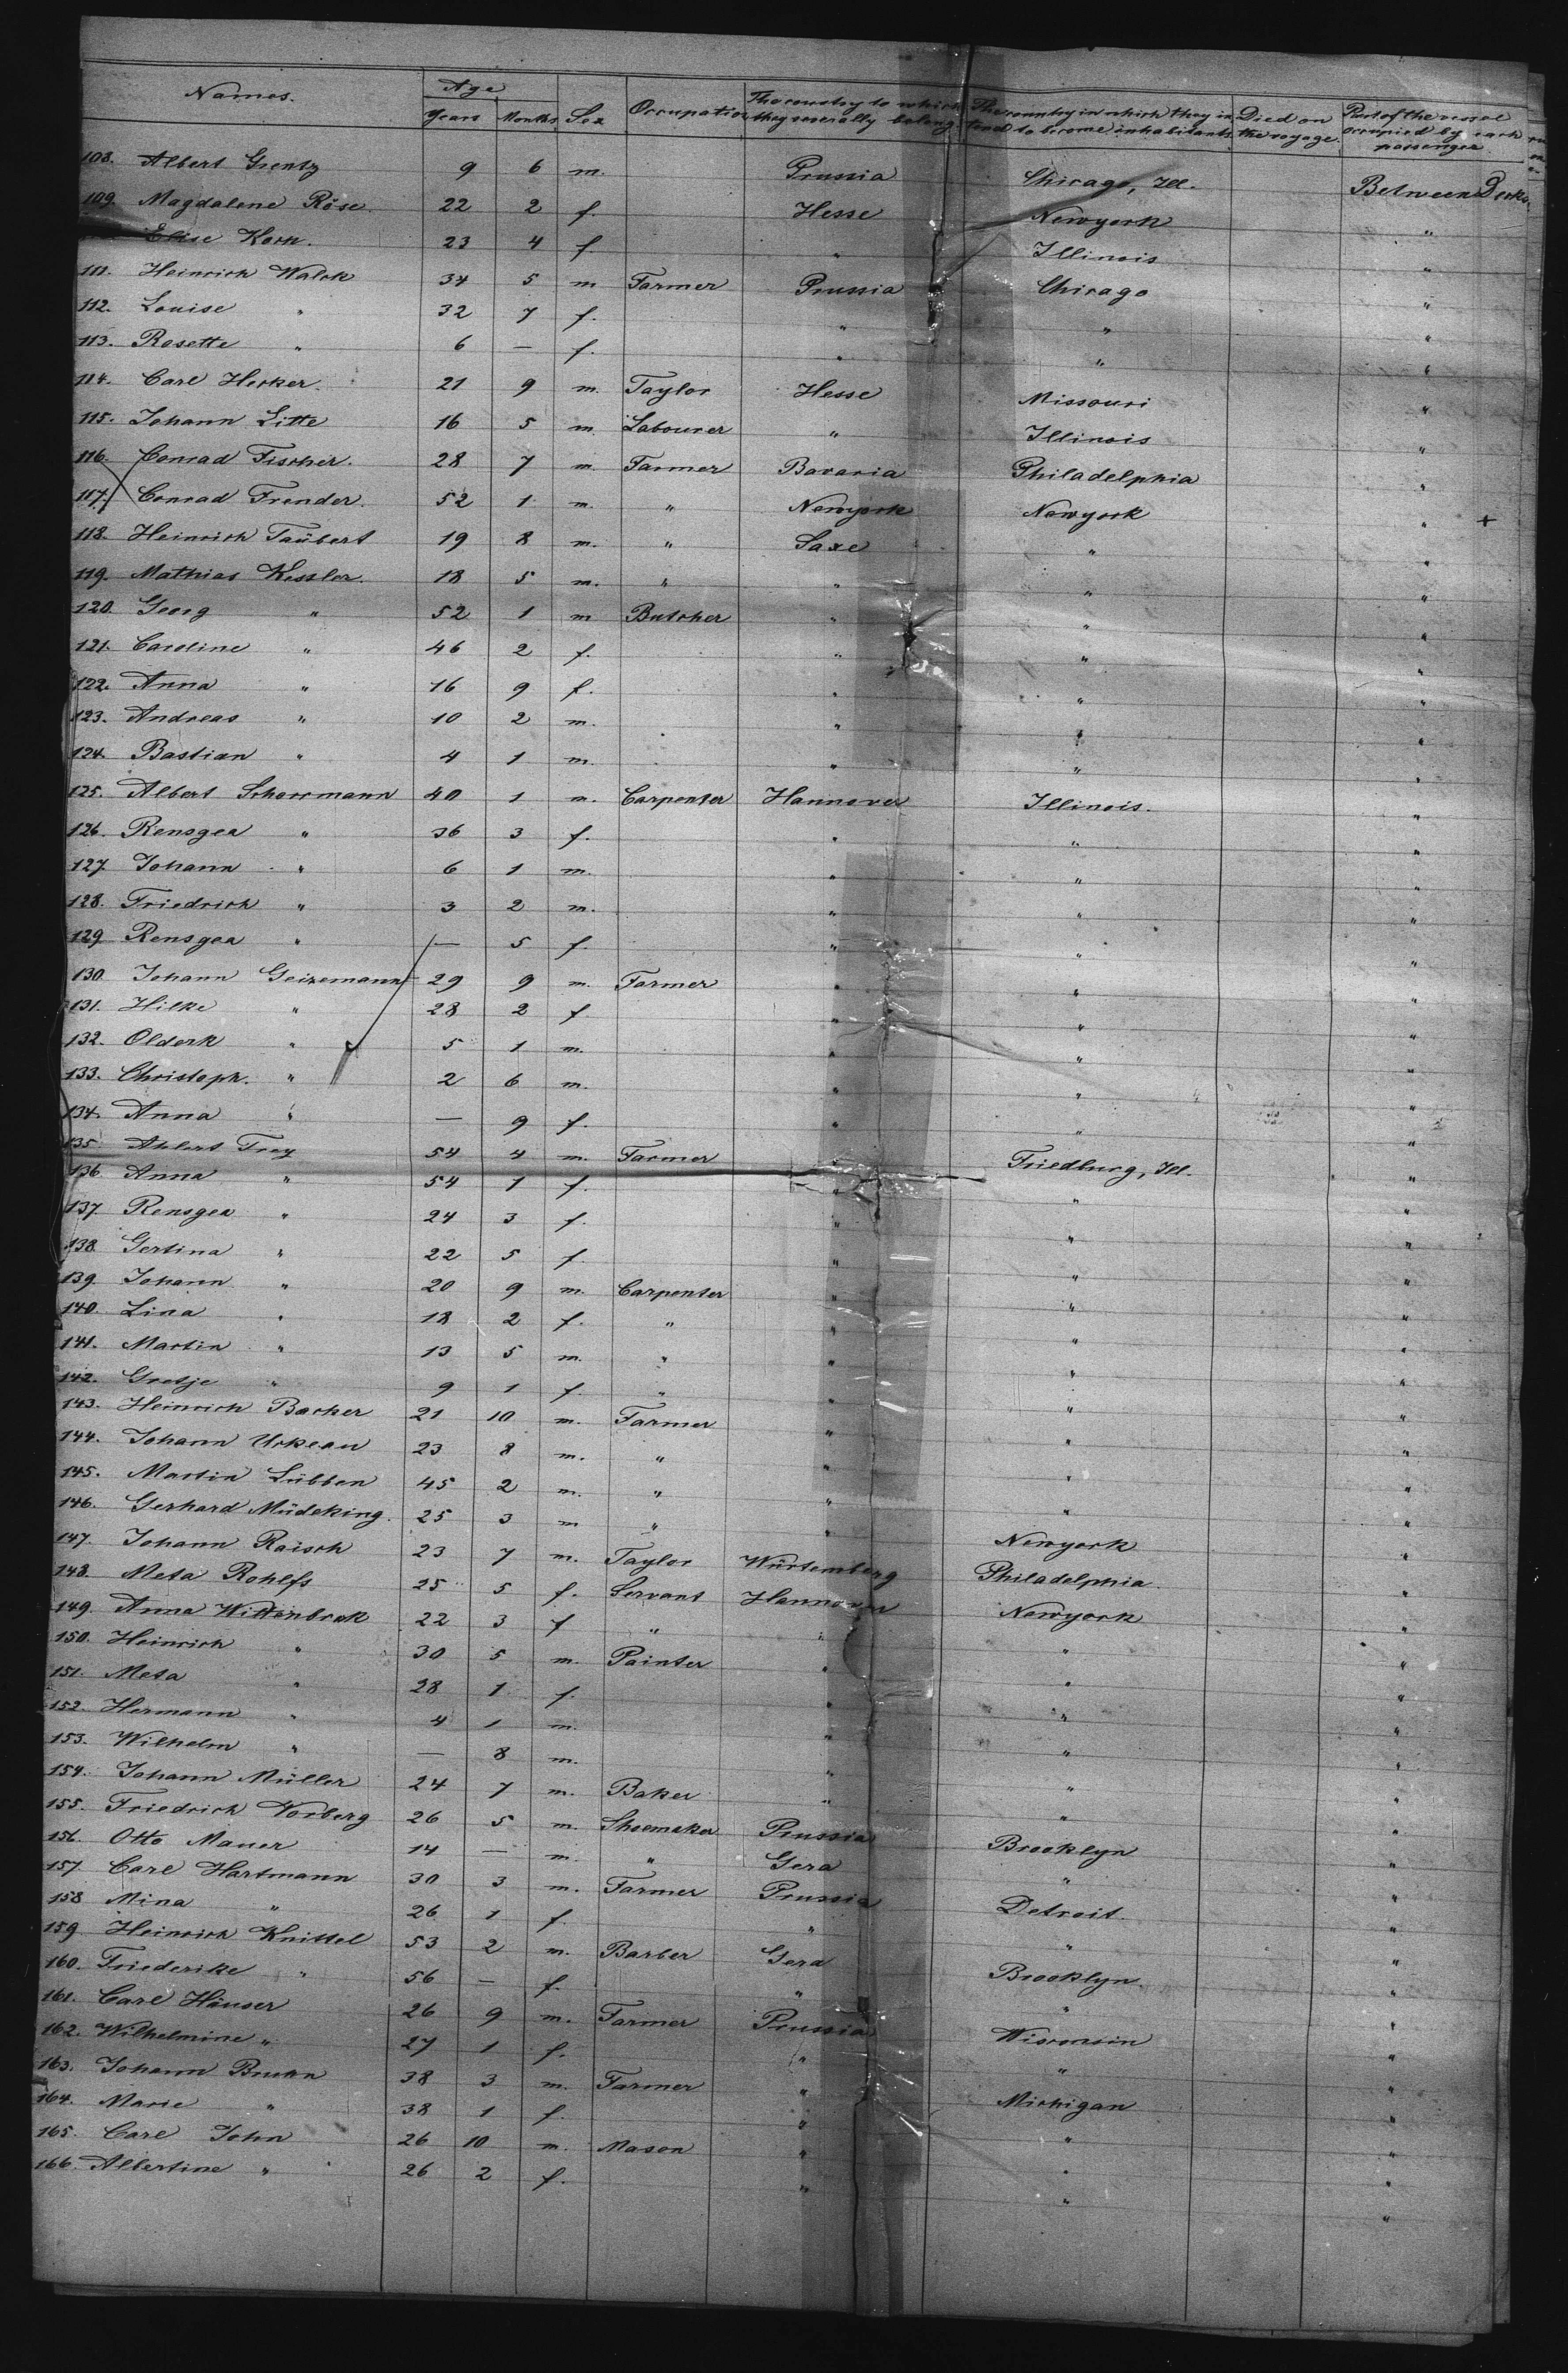 Names. Age Years Months Sex Occupation The country to which they severally belong The country in which they intend to become inhabitants Died on the voyage. Part of the vessel occupied by each passenger
108. Albert Grentz 9 6 m. Prussia Chicago, Ill. Between Decks.
109. Magdalene Röse. 22 2 f. Hesse Newyork "
Elise Korn. 23 4 f. " Illinois "
111. Heinrich Walck 34 5 m Farmer Prussia Chicago "
112. Louise " 32 7 f. " " "
113. Rosette " 6 — f. " " "
114. Carl Hecker. 21 9 m. Taylor Hesse Missouri "
115. Johann Litte 16 5 m. Labourer " Illinois "
116. Conrad Fischer. 28 7 m. Farmer Bavaria Philadelphia "
117. Conrad Frender. 52 1 m. " Newyork Newyork " +
118. Heinrich Taübert 19 8 m. " Saxe " "
119. Mathias Kessler. 18 5 m. " " " "
120. Georg " 52 1 m Butcher " " "
121. Caroline " 46 2 f. " " "
122. Anna " 16 9 f. " " "
123. Andreas " 10 2 m. " " "
124. Bastian " 4 1 m. " " "
125. Albert Schoormann 40 1 m. Carpenter Hannover Illinois. "
126. Rensgea " 36 3 f. " " "
127. Johann " 6 1 m. " " "
128. Friedrich " 3 2 m. " " "
129 Rensgea " — 5 f. " " "
130. Johann Geizemann 29 9 m. Farmer " " "
131. Hilke " 28 2 f " " "
132. Olderk " 5 1 m. " " "
133. Christoph. " 2 6 m. " " "
134. Anna " — 9 f. " " "
135. Ahlert Frey 54 4 m. Farmer " Friedburg, Ill. "
136. Anna " 54 1 f. " " "
137. Rensgea " 24 3 f. " " "
138. Gertina " 22 5 f. " " "
139. Johann " 20 9 m. Carpenter " " "
140. Lina " 18 2 f. " " " "
141. Martin " 13 5 m. " " " "
142. Gretje " 9 1 f. " " " "
143. Heinrich Backer 21 10 m. Farmer " " "
144. Johann Urkean 23 8 m. " " " "
145. Martin Lübben 45 2 m. " " " "
146. Gerhard Müdeking. 25 3 m " " " "
147. Johann Raisch 23 7 m. Taylor Würtemberg Newyork "
148. Meta Rohlfs 25 5 f. Servant Hannover Philadelphia. "
149. Anna Wittenbrak 22 3 f " " Newyork "
150. Heinrich " 30 5 m. Painter " " "
151. Meta " 28 1 f. " " "
152. Hermann " 4 1 m. " " "
153. Wilhelm " — 8 m. " " "
154. Johann Müller 24 7 m. Baker " " "
155. Friedrich Vorberg 26 5 m. Shoemaker Prussia " "
156. Otto Mauer 14 — m. " Gera Brooklyn "
157. Carl Hartmann 30 3 m. Farmer Prussia " "
158 Mina " 26 1 f. " Detroit. "
159. Heinrich Knittel 53 2 m. Barber Gera " "
160. Friederike " 56 — f. " Brooklyn. "
161. Carl Häuser 26 9 m. Farmer Prussia " "
162. Wilhelmine " 27 1 f. " Wisconsin "
163. Johann Bruhn 38 3 m. Farmer " " "
164. Marie " 38 1 f. " Michigan "
165. Carl John 26 10 m. Mason " " "
166. Albertine " 26 2 f. " " "
"